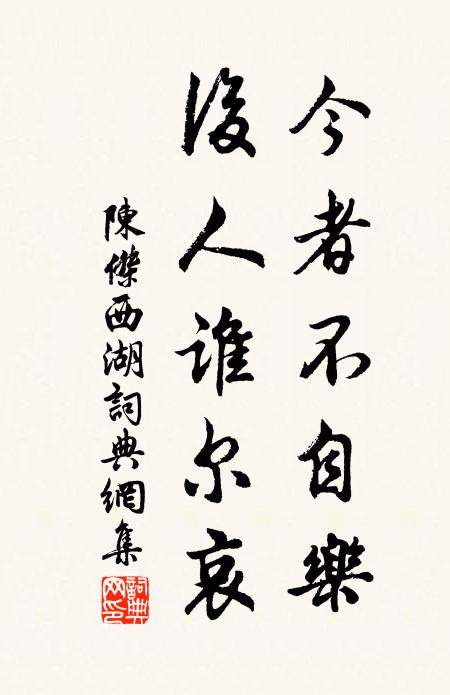 今者不自樂
後人誰尔哀
陳傑西湖詞典網集
詞典網印